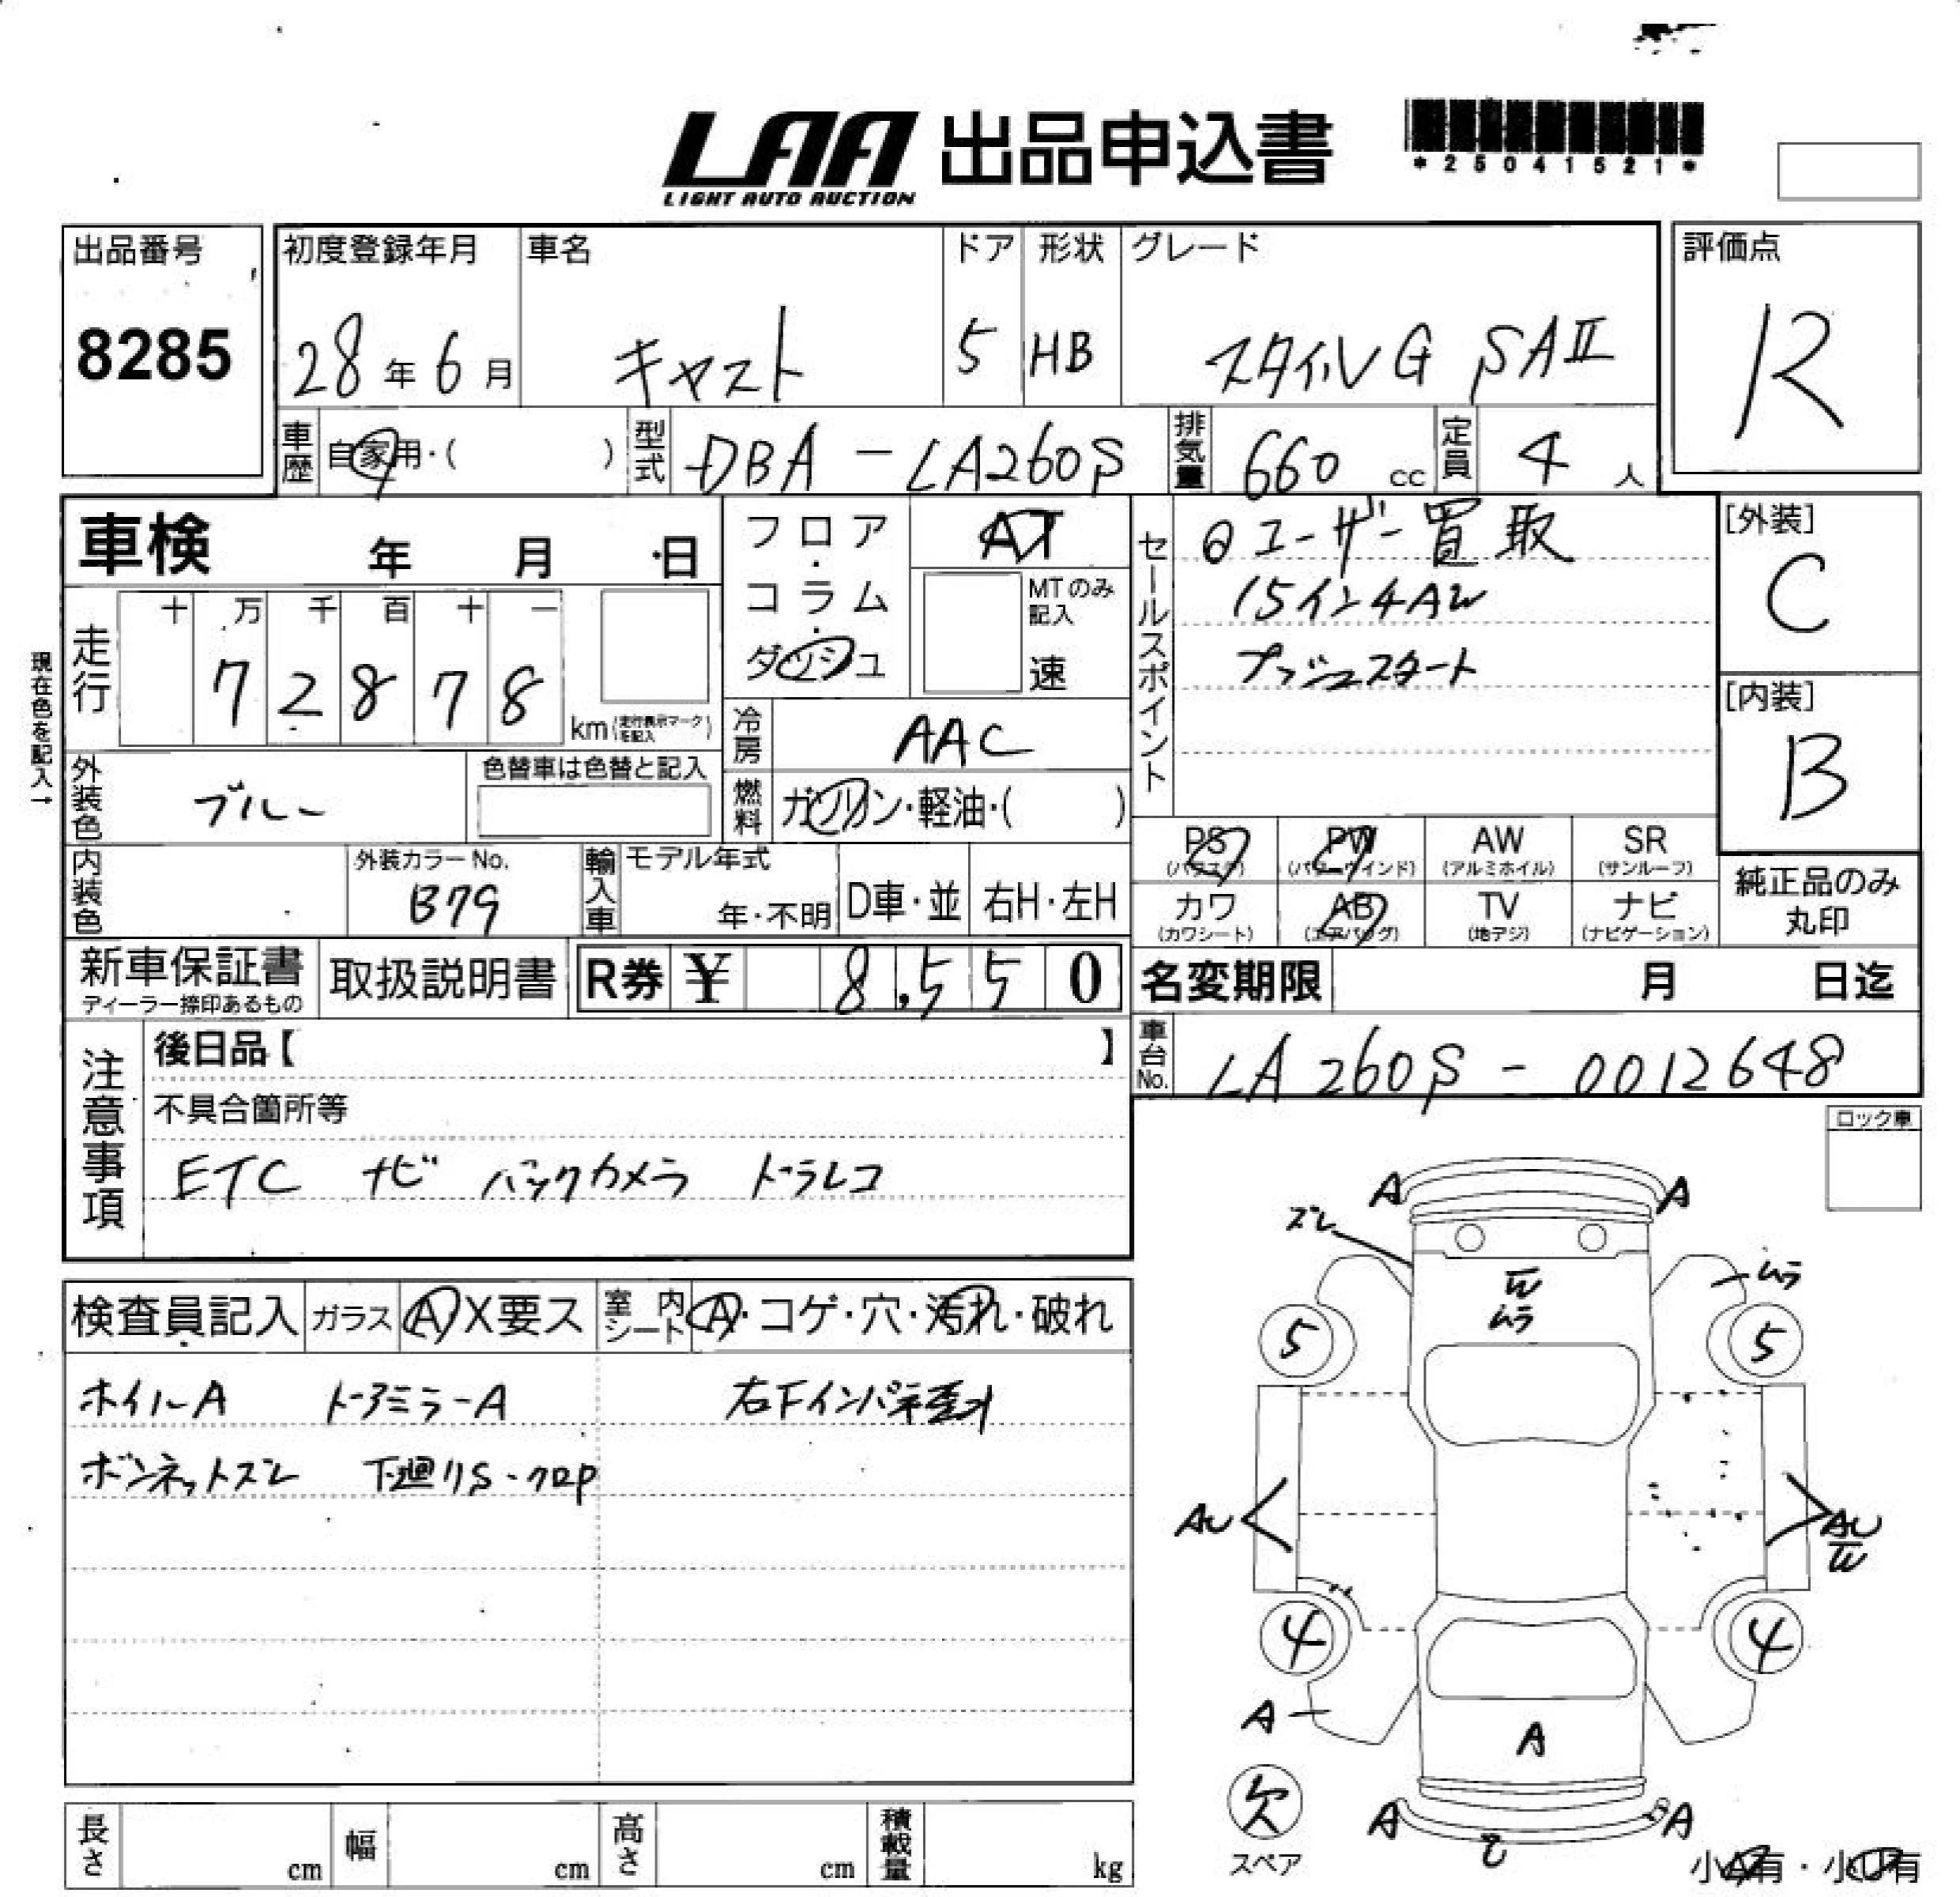 LAA 出品申込書
LIGHT AUTO AUCTION
*25041521*
出品番号
8285
初度登録年月
28年6月
車名
キャスト
ドア
5
形状
HB
グレード
スタイルG SAⅡ
評価点
R
車歴
自家用・( )
型式
DBA-LA260S
排気量
660 cc
定員
4 人
車検 年 月 日
フロア・コラム・ダッシュ
AT
MTのみ記入
速
セールスポイント
ユーザー買取
15インチAW
プッシュスタート
[外装]
C
[内装]
B
現在色を記入→
走行
十 万 千 百 十 一
7 2 8 7 8
km(走行表示マークを記入)
冷房
AAC
外装色
ブルー
色替車は色替と記入
燃料
ガソリン・軽油・( )
PS
(パワステ)
PW
(パワーウインド)
AW
(アルミホイル)
SR
(サンルーフ)
カワ
(カワシート)
AB
(エアバッグ)
TV
(地デジ)
ナビ
(ナビゲーション)
純正品のみ
丸印
内装色
外装カラーNo.
B79
輸入車
モデル年式
年・不明
D車・並
右H・左H
新車保証書
ディーラー捺印あるもの
取扱説明書
R券 ¥ 8,550
名変期限 月 日迄
車台No.
LA260S-0012648
注意事項
後日品【 】
不具合箇所等
ETC ナビ バックカメラ ドラレコ
ロック車
検査員記入
ガラス
A X要ス
室内シート
A・コゲ・穴・汚れ・破れ
ホイルA ドアミラーA 右下インパネ歪み
ボンネットズレ 下廻りS・クロP
A
A
ズレ
W
ムラ
ムラ
5
5
AU
AU
W
4
4
A
A
欠
スペア
A
A
小A有・小U有
長さ cm
幅 cm
高さ cm
積載量 kg